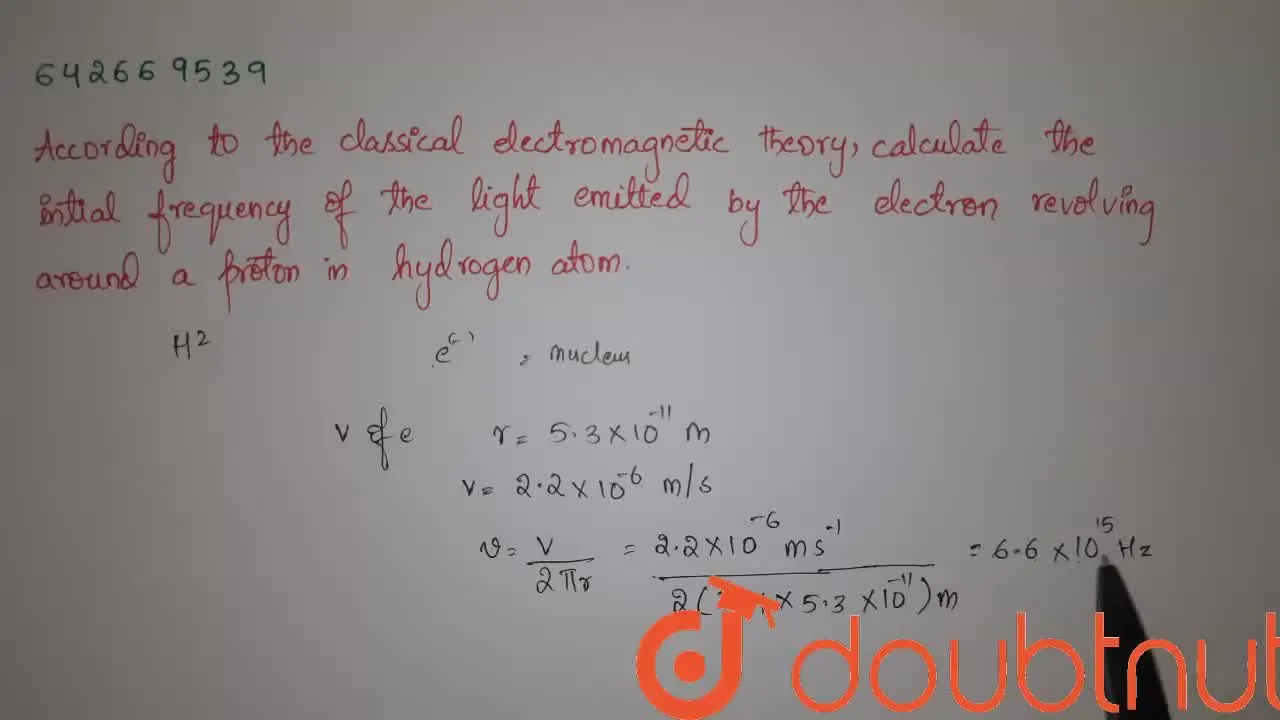 642669539
According to the classical electromagnetic theory, calculate the
intial frequency of the light emitted by the electron revolving
around a proton in hydrogen atom.
H² e⁽⁻⁾ = nucleus
v of e r = 5.3×10⁻¹¹ m
v = 2.2×10⁻⁶ m/s
ν = v/2πr = 2.2×10⁻⁶ ms⁻¹ / 2( × 5.3 ×10⁻¹¹)m = 6.6 ×10¹⁵ Hz
doubtnut